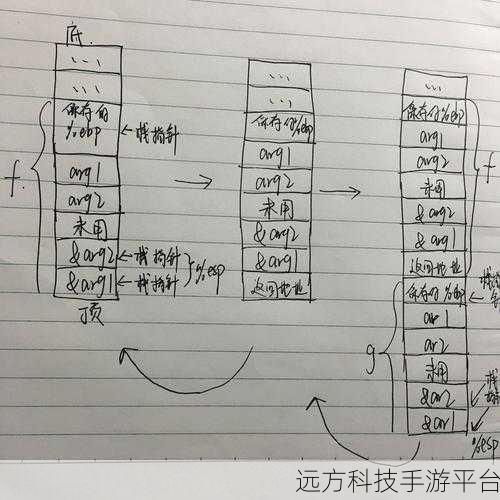 底
...
...
保存的
%ebp
←栈指针
f
arg1
arg2
未用
&arg2
←栈指针
&arg1
←栈指针
%esp
顶
→
...
...
保存的%ebp
arg1
arg2
未用
&arg2
&arg1
返回地址
→
...
...
保存的%ebp
arg1
arg2
未用
&arg2
&arg1
返回地址
f
保存的%ebp
g
ar1
ar2
未用
&ar2
&ar1
%esp
远方科技手游平台